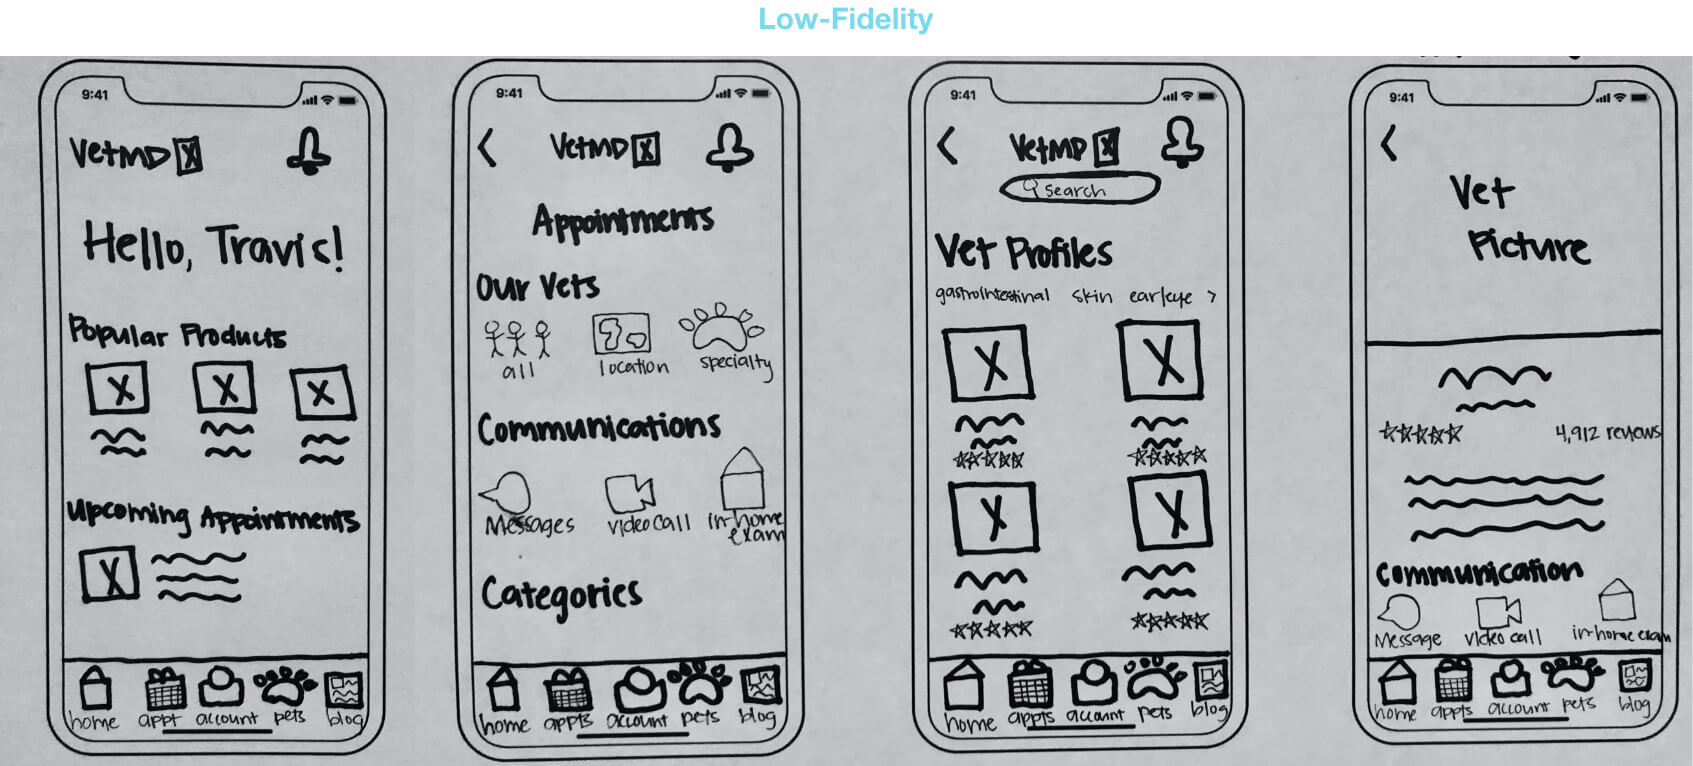 Low-Fidelity
9:41
VetMD
Hello, Travis!
Popular Products
Upcoming Appointments
home appt account pets blog
9:41
VetMD
Appointments
Our Vets
all location specialty
Communications
Messages video call in-home
exam
Categories
home appts account pets blog
9:41
VetMD
search
Vet Profiles
gastrointestinal skin ear/eye >
home appts account pets blog
9:41
Vet
Picture
4,912 reviews
Communication
Message video call in-home exam
home appts account pets blog